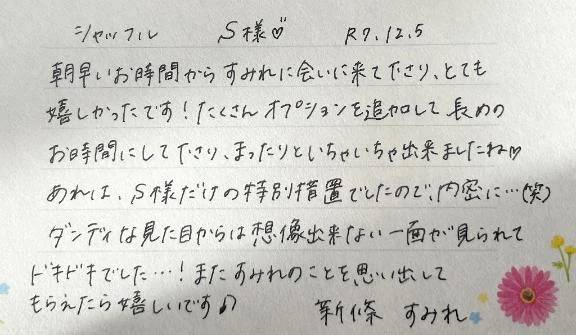 シャッフル S様♡ R7.12.5
朝早いお時間からすみれに会いに来て下さり、とても
嬉しかったです!たくさんオプションを追加して長めの
お時間にして下さり、まったりといちゃいちゃ出来ましたね♡
あれは、S様だけの特別措置でしたので、内密に…(笑)
ダンディな見た目からは想像出来ない一面が見られて
ドキドキでした…!またすみれのことを思い出して
もらえたら嬉しいです♪ 新條 すみれ